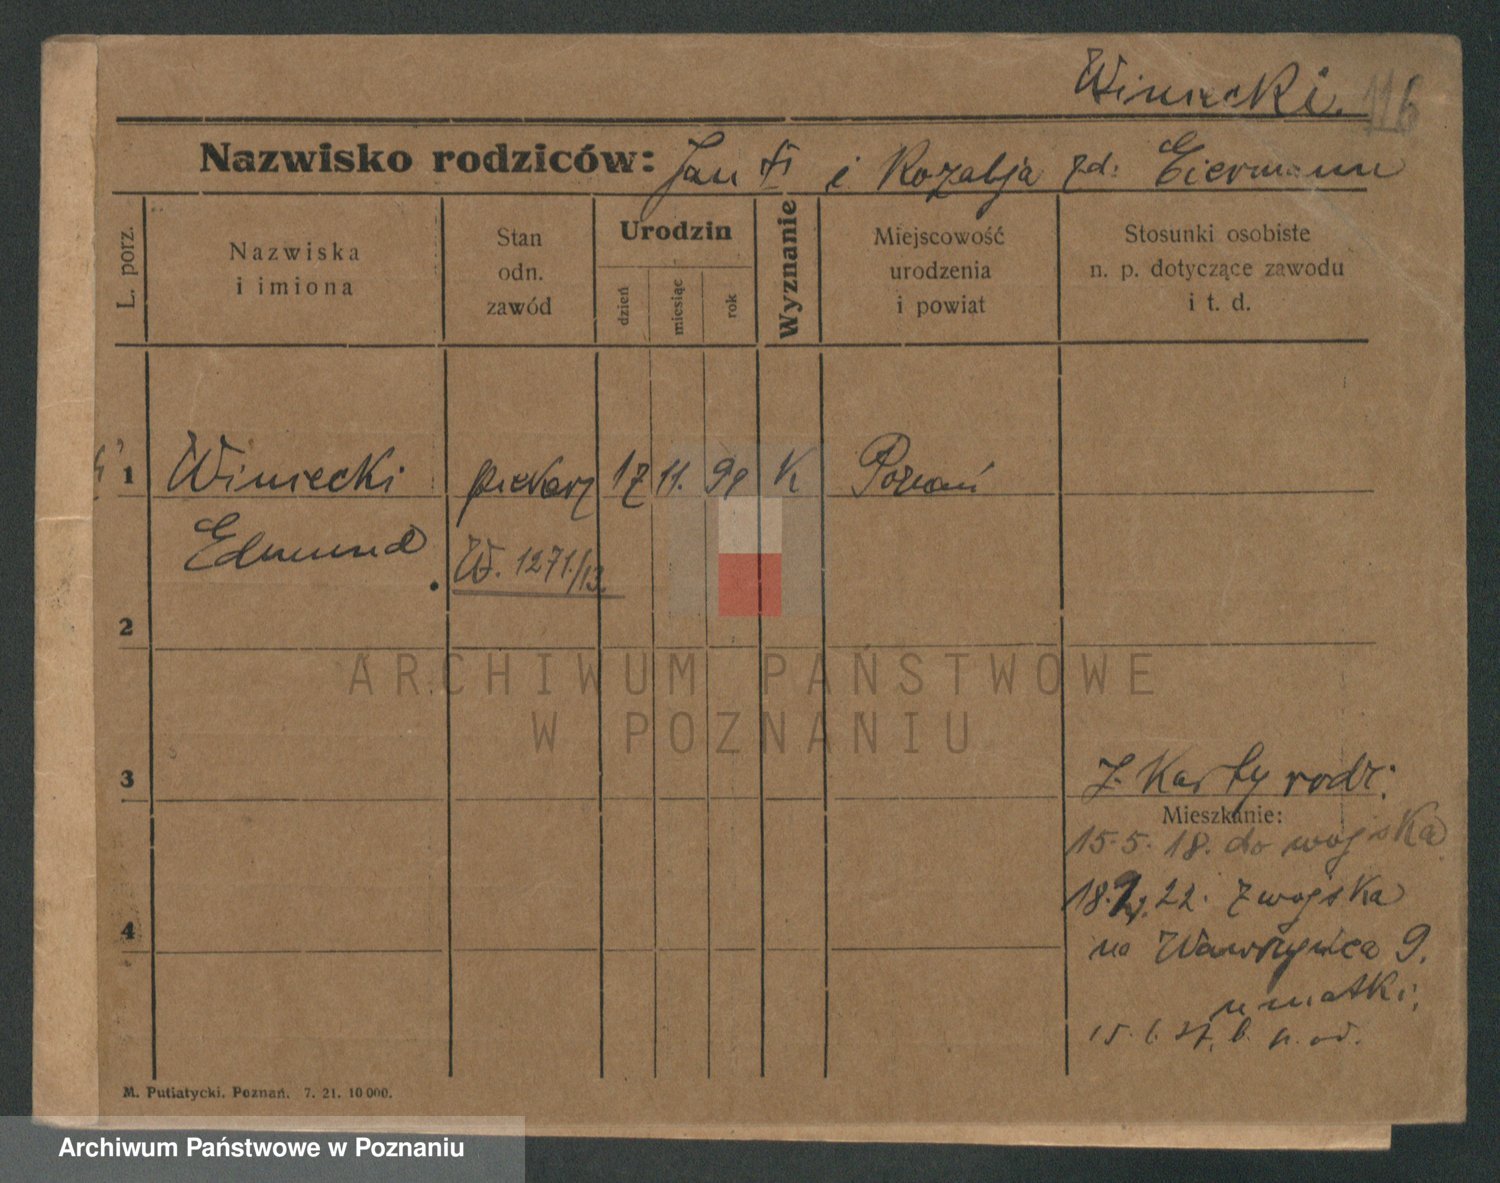 Winiecki. 116
Nazwisko rodziców: Jan i Rozalja zd. Eiermann
L. porz.
Nazwiska
i imiona
Stan
odn.
zawód
Urodzin
dzień
miesiąc
rok
Wyznanie
Miejscowość
urodzenia
i powiat
Stosunki osobiste
n. p. dotyczące zawodu
i t. d.
1 Winiecki piekarz 17 11. 99 K Poznań
Edmund W. 1271/13.
2
3
Z Karty rodz:
Mieszkanie:
15.5.18. do wojska
4
18. 22. z wojska
na Wawrzyńca 9.
u matki.
M. Putiatycki, Poznań. 7. 21. 10 000.
ARCHIWUM PAŃSTWOWE
W POZNANIU
Archiwum Państwowe w Poznaniu